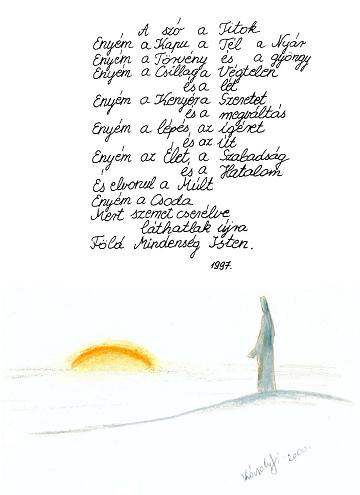 A szó a Titok
Enyém a Kapu a Tél a Nyár
Enyém a Törvény és a gyöngy
Enyém a Csillag a Végtelen
és a lét
Enyém a Kenyér a Szeretet
és a megváltás
Enyém a lépés, az ígéret
és az út
Enyém az Élet, a Szabadság
és a Hatalom
És elvonul a Múlt
Enyém a Csoda
Mert szemet cserélve
láthatlak újra
Föld Mindenség Isten.
1997.
2000.